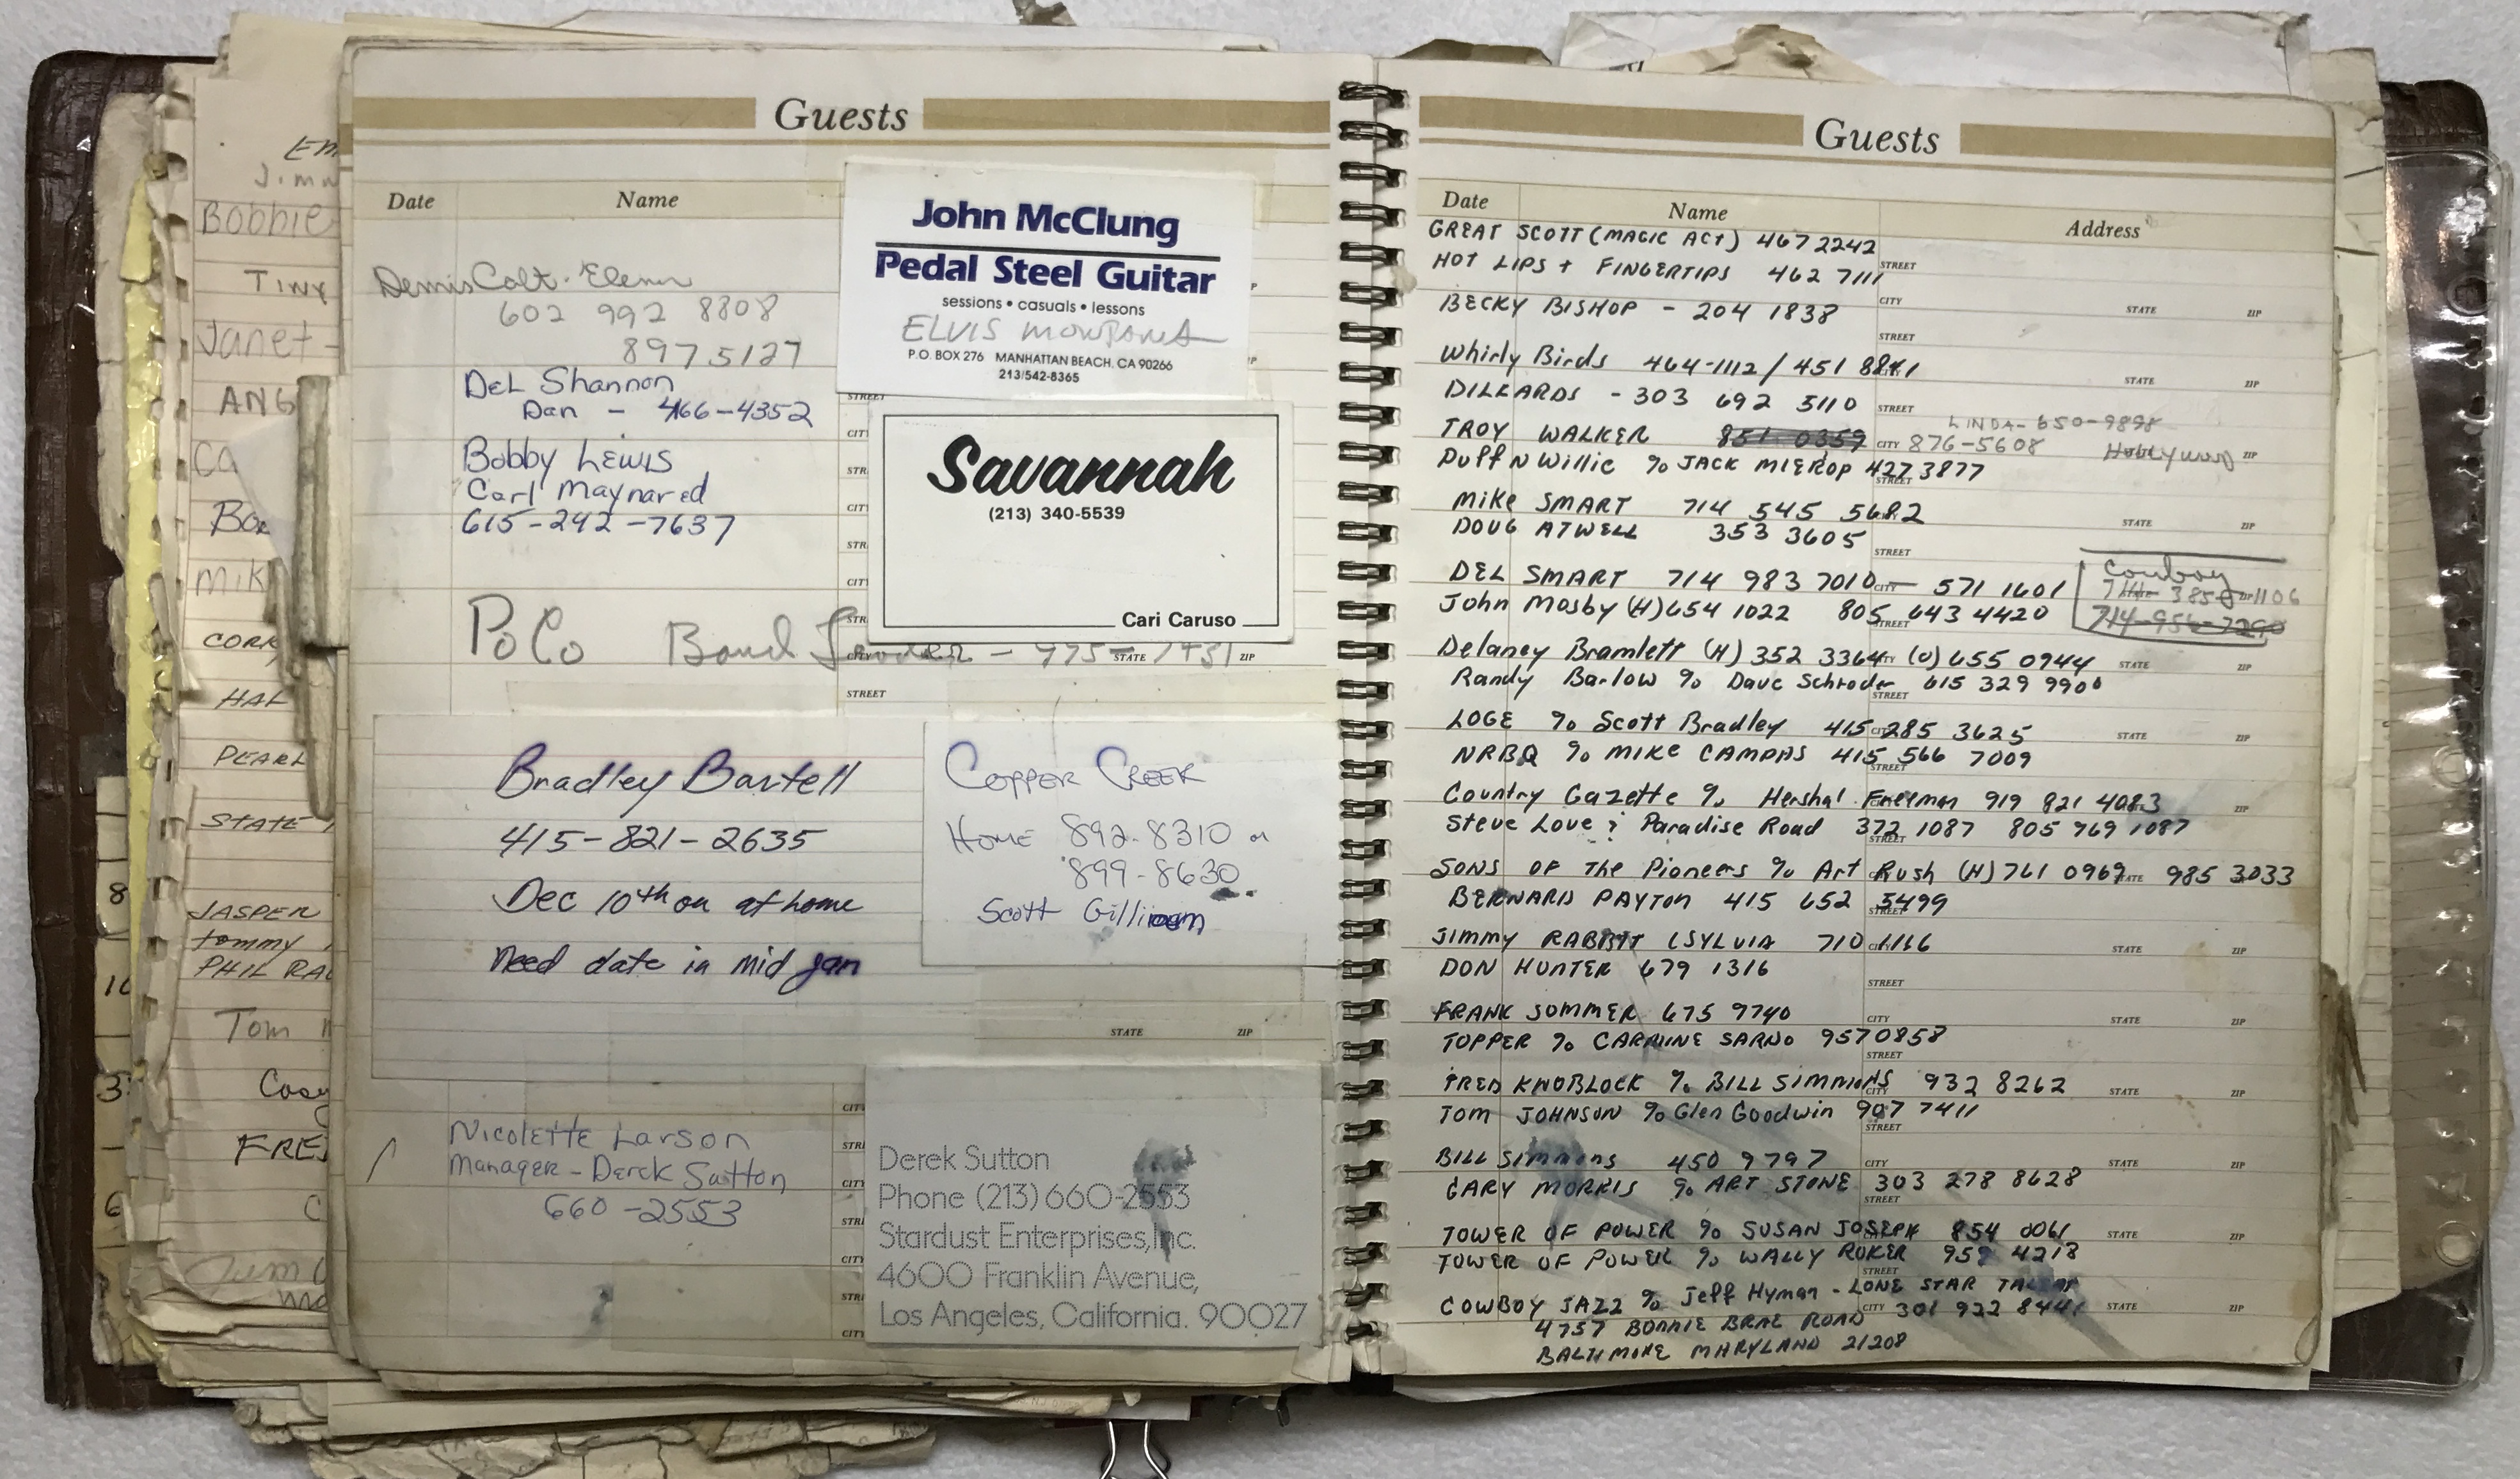 Em
Jimm
Bobbie
TINY
Janet -
ANG
Ca
Bo
mik
CORK
HAL
PEARL
STATE
JASPER
tommy
PHIL RA
Tom
Casy
FRE
C
8
10
3
6
Guests
Date Name
Dennis Colt - Elenor
602 992 8808
897 5127
DeL Shannon
Dan - 466-4352
Bobby Lewis
Carl Maynared
615-242-7637
PoCo Band Leader - 975-7451
STREET
CITY STATE ZIP
STREET
John McClung
Pedal Steel Guitar
sessions • casuals • lessons
ELVIS MONTANA
P.O. BOX 276 MANHATTAN BEACH, CA 90266
213/542-8365
Savannah
(213) 340-5539
Cari Caruso
Bradley Bartell
415-821-2635
Dec 10th on at home
Need date in mid jan
COPPER CREEK
HOME 892-8310 or
899-8630
Scott Gilliom
STATE ZIP
Nicolette Larson
Manager - Derek Sutton
660-2553
Derek Sutton
Phone (213) 660-2553
Stardust Enterprises, Inc.
4600 Franklin Avenue,
Los Angeles, California. 90027
Guests
Date Name Address
GREAT SCOTT (MAGIC ACT) 467 2242
HOT LIPS + FINGERTIPS 462 7111 STREET
CITY STATE ZIP
BECKY BISHOP - 204 1838
STREET
Whirly Birds 464-1112 / 451 8841
STATE ZIP
DILLARDS - 303 692 5110 STREET
LINDA- 650-9898
TROY WALKER 851 0359 CITY 876-5608 Hollywood ZIP
Duff N Willie % JACK MIEROP 427 3877
STREET
Mike SMART 714 545 5682
STATE ZIP
DOUG ATWELL 353 3605
STREET
Cowboy
DEL SMART 714 983 7010 - 571 1601
714- 385-1106
John Mosby (H) 654 1022 805 643 4420
714-956-7290
Delaney Bramlett (H) 352 3364 (O) 655 0944 STATE ZIP
Randy Barlow % Dave Schroder 615 329 9900
STREET
LOGE % Scott Bradley 415 285 3625 STATE ZIP
NRBQ % MIKE CAMPAS 415 566 7009
STREET
Country Gazette % Hershal Freeman 919 821 4083 ZIP
Steve Love & Paradise Road 372 1087 805 969 1087
STREET
SONS OF the Pioneers % Art Rush (H) 761 0969 985 3033
BERNARD PAYTON 415 652 5499
STREET
JIMMY RABBIT (SYLVIA 710 1116 STATE ZIP
DON HUNTER 679 1316
STREET
FRANK SOMMER 675 9740 CITY STATE ZIP
TOPPER % CARMINE SARNO 957 0858
STREET
FRED KNOBLOCK % BILL SIMMONS 932 8262 STATE ZIP
TOM JOHNSON % Glen Goodwin 907 7411
STREET
BILL SIMMONS 450 9797 CITY STATE ZIP
GARY MORRIS % ART STONE 303 278 8628
STREET
TOWER OF POWER % SUSAN JOSEPH 854 0061 STATE ZIP
TOWER OF POWER % WALLY ROKER 959 4218
STREET
COWBOY JAZZ % Jeff Hyman - LONE STAR TALENT
CITY 301 922 8441 STATE ZIP
4757 BONNIE BRAE ROAD
BALTIMORE MARYLAND 21208